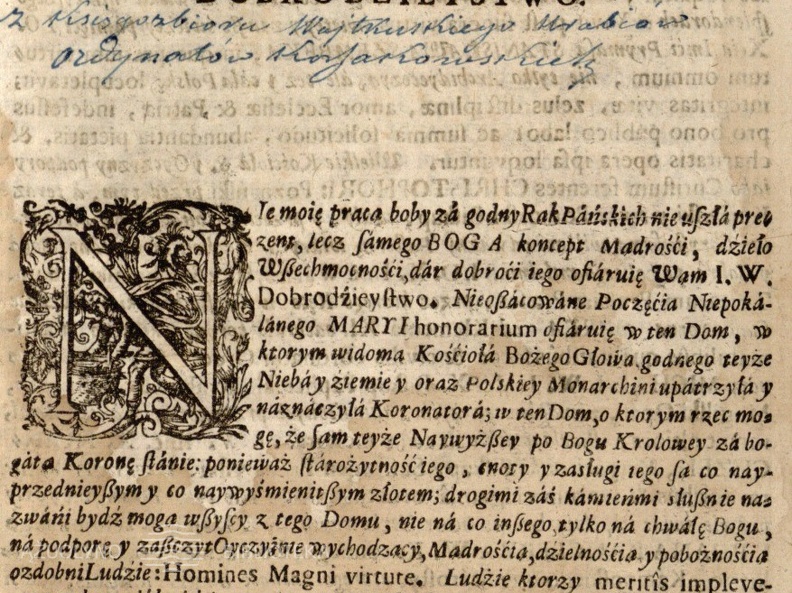 DOBRODZIEYSTWO.
z Księgozbioru Wojtkuskiego Hrabiów
Ordynatów Kossakowskich
NIe moię praca boby zá godny Rak Páńskich nie uſzłá pre-
zent, lecz ſámego BOGA koncept Mądrośći, dzieło
Wßechmocnośći, dár dobroći iego ofiáruię Wam I. W.
Dobrodźieyſtwo. Nieoßácowáne Poczęćia Niepoká-
lánego MARYI honorarium ofiáruię w ten Dom, w
ktorym widoma Kośćiołá Bożego Głowa godnego teyże
Niebá y źiemie y oraz Polskiey Monarchini upátrzyłá y
náznáczyłá Koronatorá; w ten Dom, o ktorym rzec mo-
gę, że ſam teyże Naywyżßey po Bogu Krolowey zá bo-
gáta Koronę ſtánie: ponieważ ſtárożytność iego, cnoty y zasługi iego ſa co nay-
przednieyßym y co naywyśmienitßym złotem; drogimi záś kámieńmi słußnie na-
zwáńi bydź moga wßyſcy z tego Domu, nie ná co inßego, tylko ná chwáłę Bogu,
ná podporę y zaßczyt Oyczyźnie wychodzący, Mądrośćia, dzielnośćia y pobożnośćia
ozdobni Ludzie: Homines Magni virtute. Ludźie ktorzy meritîs impleve-